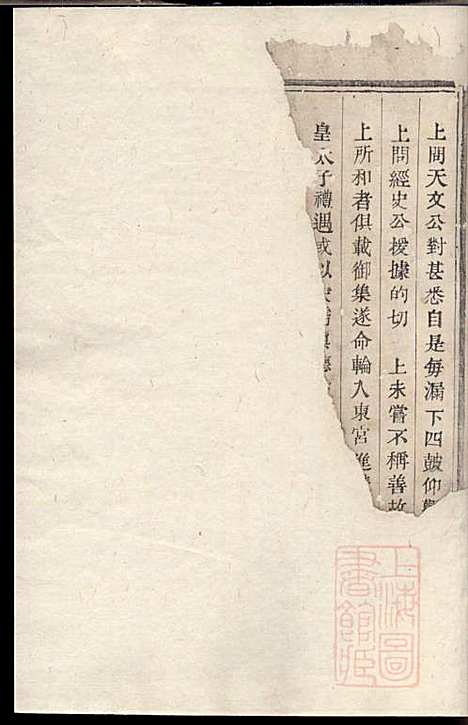 上問天文公對甚悉自是每漏下四鼓仰
上問經史公援據的切　上未嘗不稱善故
上所和者俱載御集遂命輪入東宮進
皇太子禮遇或以
上海圖書館藏